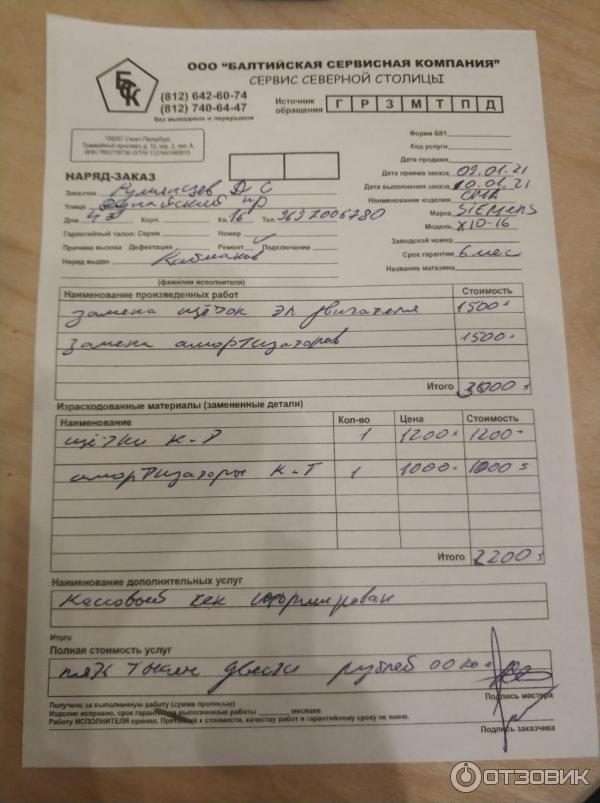 БСК
ООО "БАЛТИЙСКАЯ СЕРВИСНАЯ КОМПАНИЯ"
СЕРВИС СЕВЕРНОЙ СТОЛИЦЫ
(812) 642-60-74
(812) 740-64-47
Без выходных и перерывов
Источник обращения Г Р З М Т П Д
Санкт-Петербург,
Трамвайный проспект, д. 12, кор. 2, лит. А
Форма Б81
Код услуги
Дата продажи
НАРЯД-ЗАКАЗ
Дата приема заказа 09.01.21
Заказчик Румянцев Д С
Дата выполнения заказа 10.01.21
Улица Дунайский пр
Наименование изделия СМА
Дом 43 Корп. Кв. 16 Тел. 9697006780
Марка SIEMENS
Модель
Гарантийный талон: Серия Номер
Заводской номер
Причина вызова Дефектация Ремонт ✓ Подключение
Срок гарантии 6 мес
Наряд выдан
Название магазина
(фамилия исполнителя)
Наименование произведенных работ Стоимость
замена щёток эл двигателя 1500
замена амортизаторов 1500
Итого 3000
Израсходованные материалы (замененные детали)
Наименование Кол-во Цена Стоимость
щётки к-т 1 1200 1200
амортизаторы к-т 1 1000 1000
Итого 2200
Наименование дополнительных услуг
Кассовый чек сформирован
Итого
Полная стоимость услуг
пять тысяч двести рублей 00 ко
Подпись мастера
Получено за выполненную работу (сумма прописью)
Изделие исправно, срок гарантии выполненные работы месяцев
Работу ИСПОЛНИТЕЛЯ принял. Претензий к стоимости, качеству работ и гарантийному сроку не имею.
Подпись заказчика
ОТЗОВИК